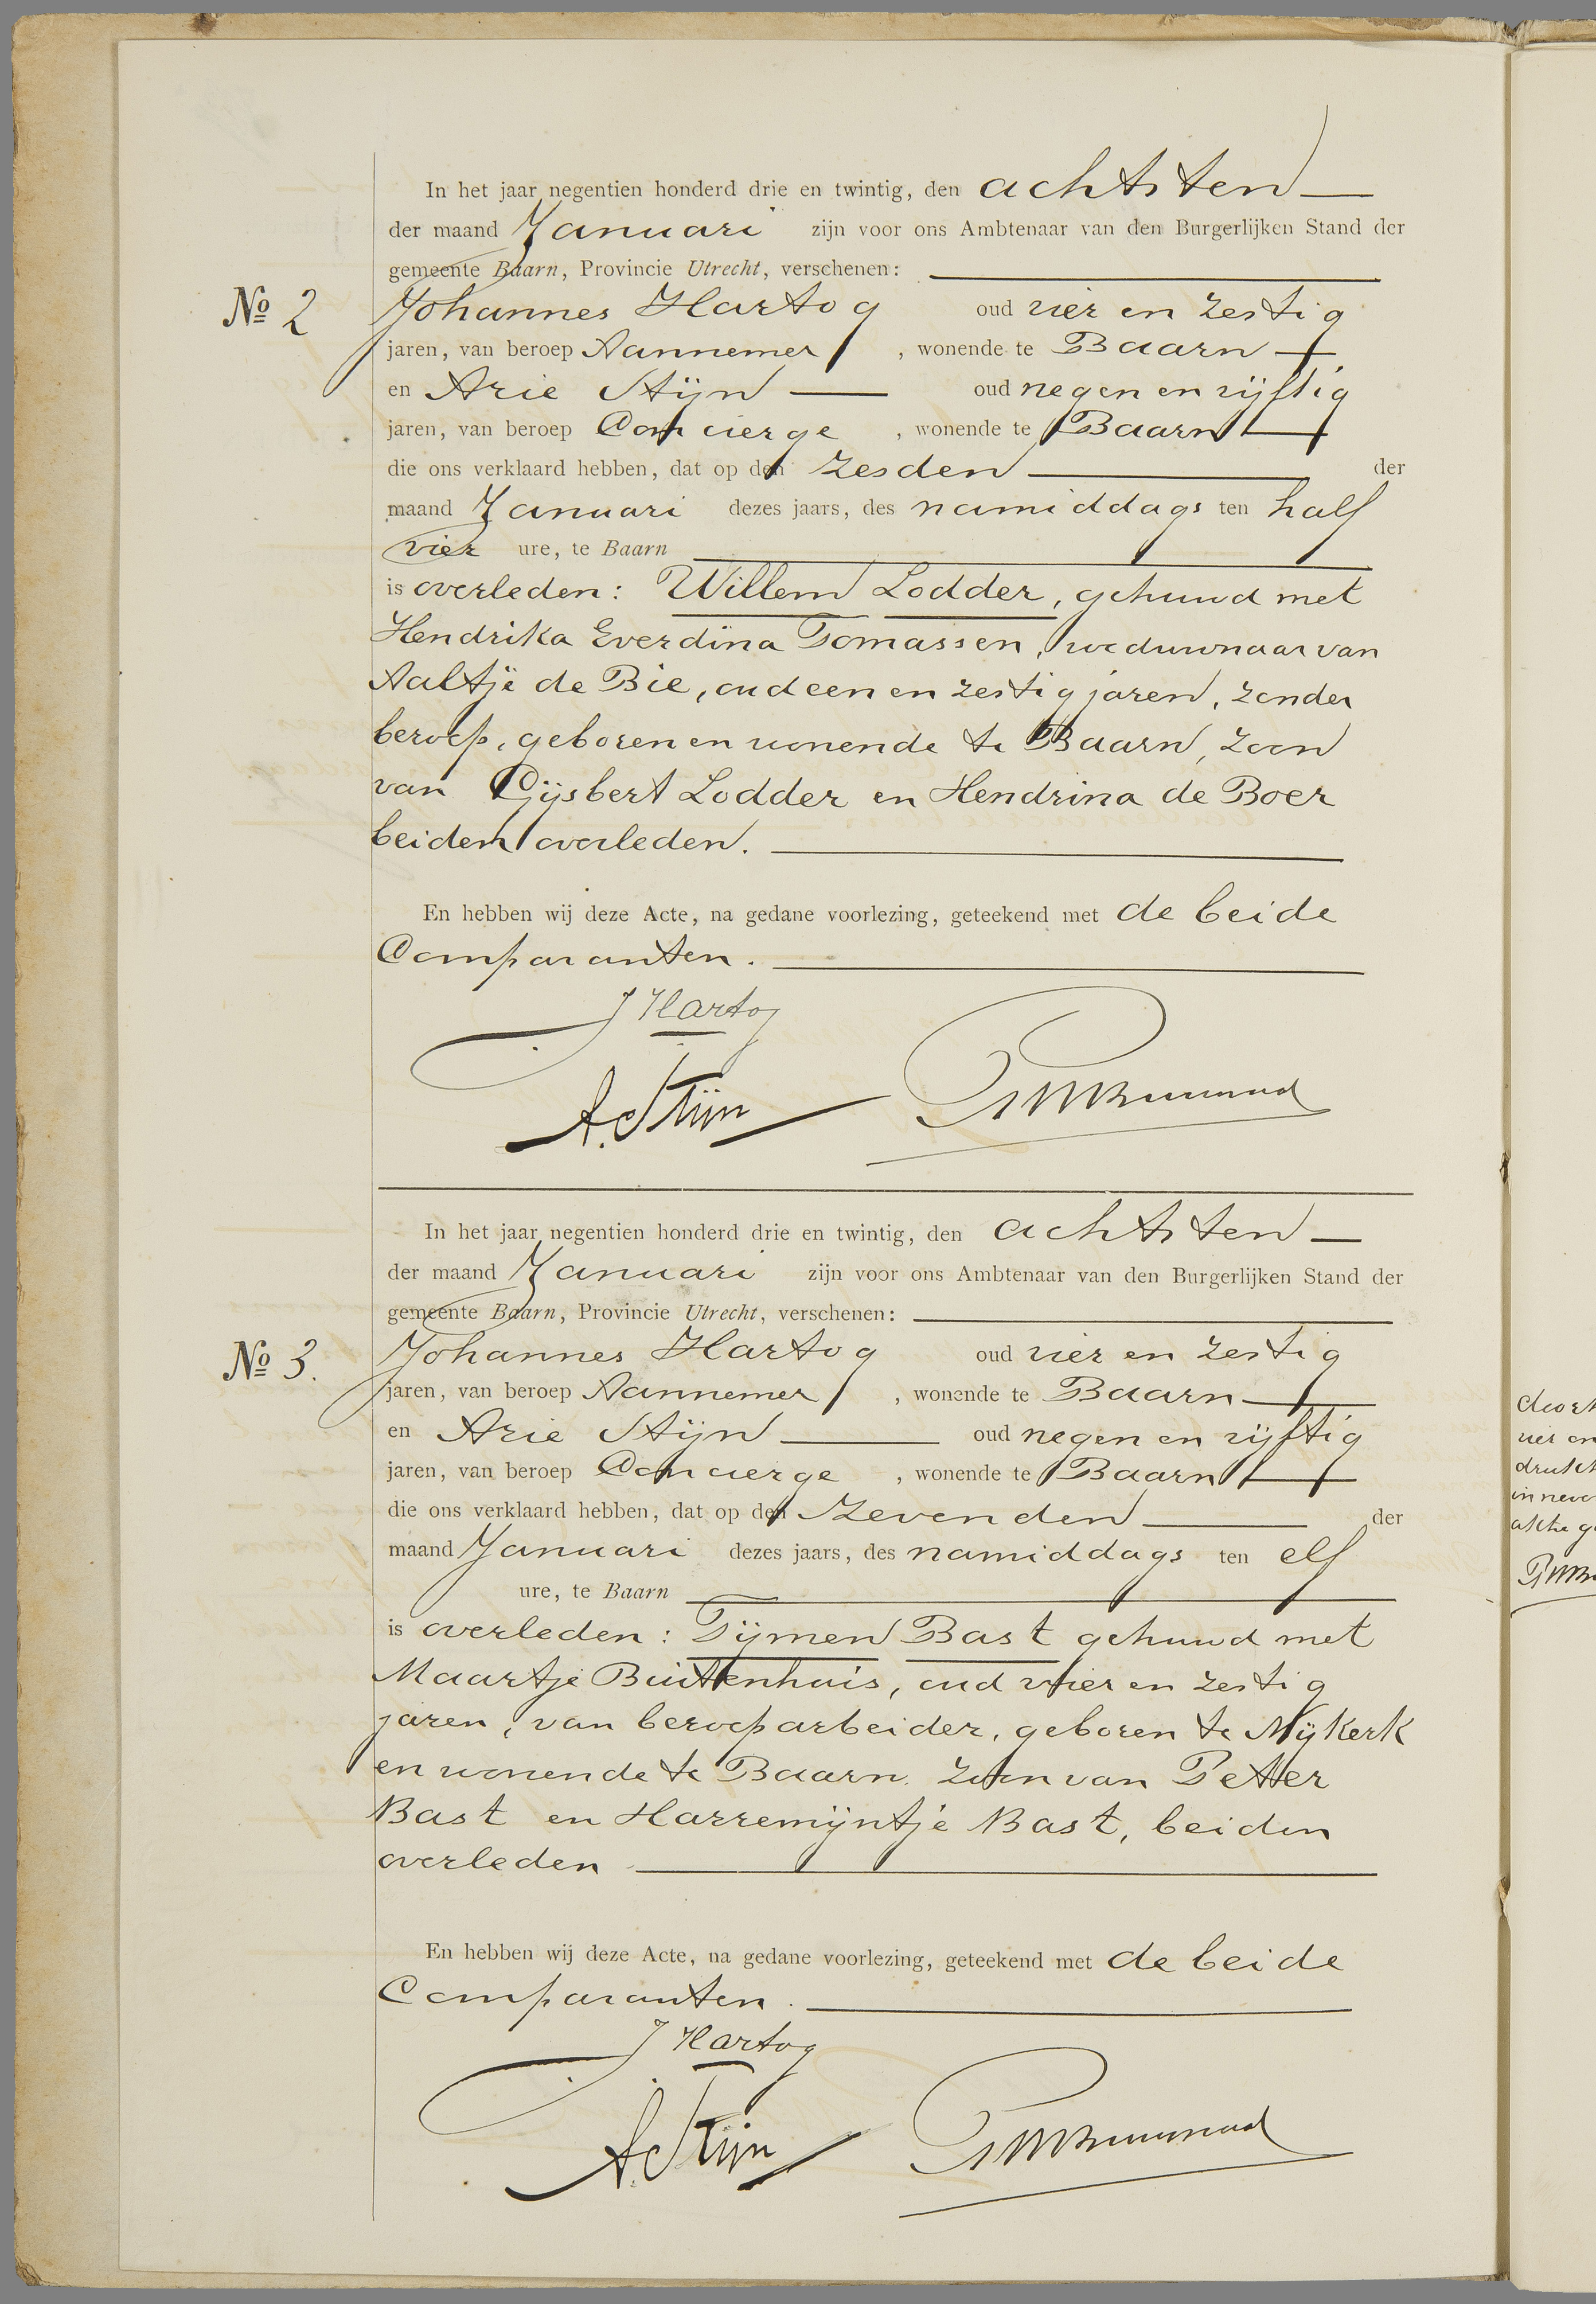 In het jaar negentien honderd drie en twintig, den achtsten
der maand Januari zijn voor ons Ambtenaar van den Burgerlijken Stand der
gemeente Baarn, Provincie Utrecht, verschenen:
No 2
Johannes Hartog oud vier en zestig
jaren, van beroep Aannemer, wonende te Baarn
en Arie Stijn oud negen en vijftig
jaren, van beroep Concierge, wonende te Baarn
die ons verklaard hebben, dat op den zesden der
maand Januari dezes jaars, des namiddags ten half
vier ure, te Baarn
is overleden: Willem Lodder, gehuwd met
Hendrika Everdina Tomassen, weduwnaar van
Aaltje de Bie, oud een en zestig jaren, zonder
beroep, geboren en wonende te Baarn, zoon
van Gijsbert Lodder en Hendrina de Boer
beiden overleden.
En hebben wij deze Acte, na gedane voorlezing, geteekend met de beide
Comparanten.
J Hartog
A. Stijn
In het jaar negentien honderd drie en twintig, den achtsten
der maand Januari zijn voor ons Ambtenaar van den Burgerlijken Stand der
gemeente Baarn, Provincie Utrecht, verschenen:
No 3.
Johannes Hartog oud vier en zestig
jaren, van beroep Aannemer, wonende te Baarn
en Arie Stijn oud negen en vijftig
jaren, van beroep Concierge, wonende te Baarn
die ons verklaard hebben, dat op den zevenden der
maand Januari dezes jaars, des namiddags ten elf
ure, te Baarn
is overleden: Tijmen Bast gehuwd met
Maartje Buitenhuis, oud vier en zestig
jaren, van beroep arbeider, geboren te Nijkerk
en wonende te Baarn, zoon van Peter
Bast en Harremijntje Bast, beiden
overleden
En hebben wij deze Acte, na gedane voorlezing, geteekend met de beide
Comparanten.
J Hartog
A. Stijn